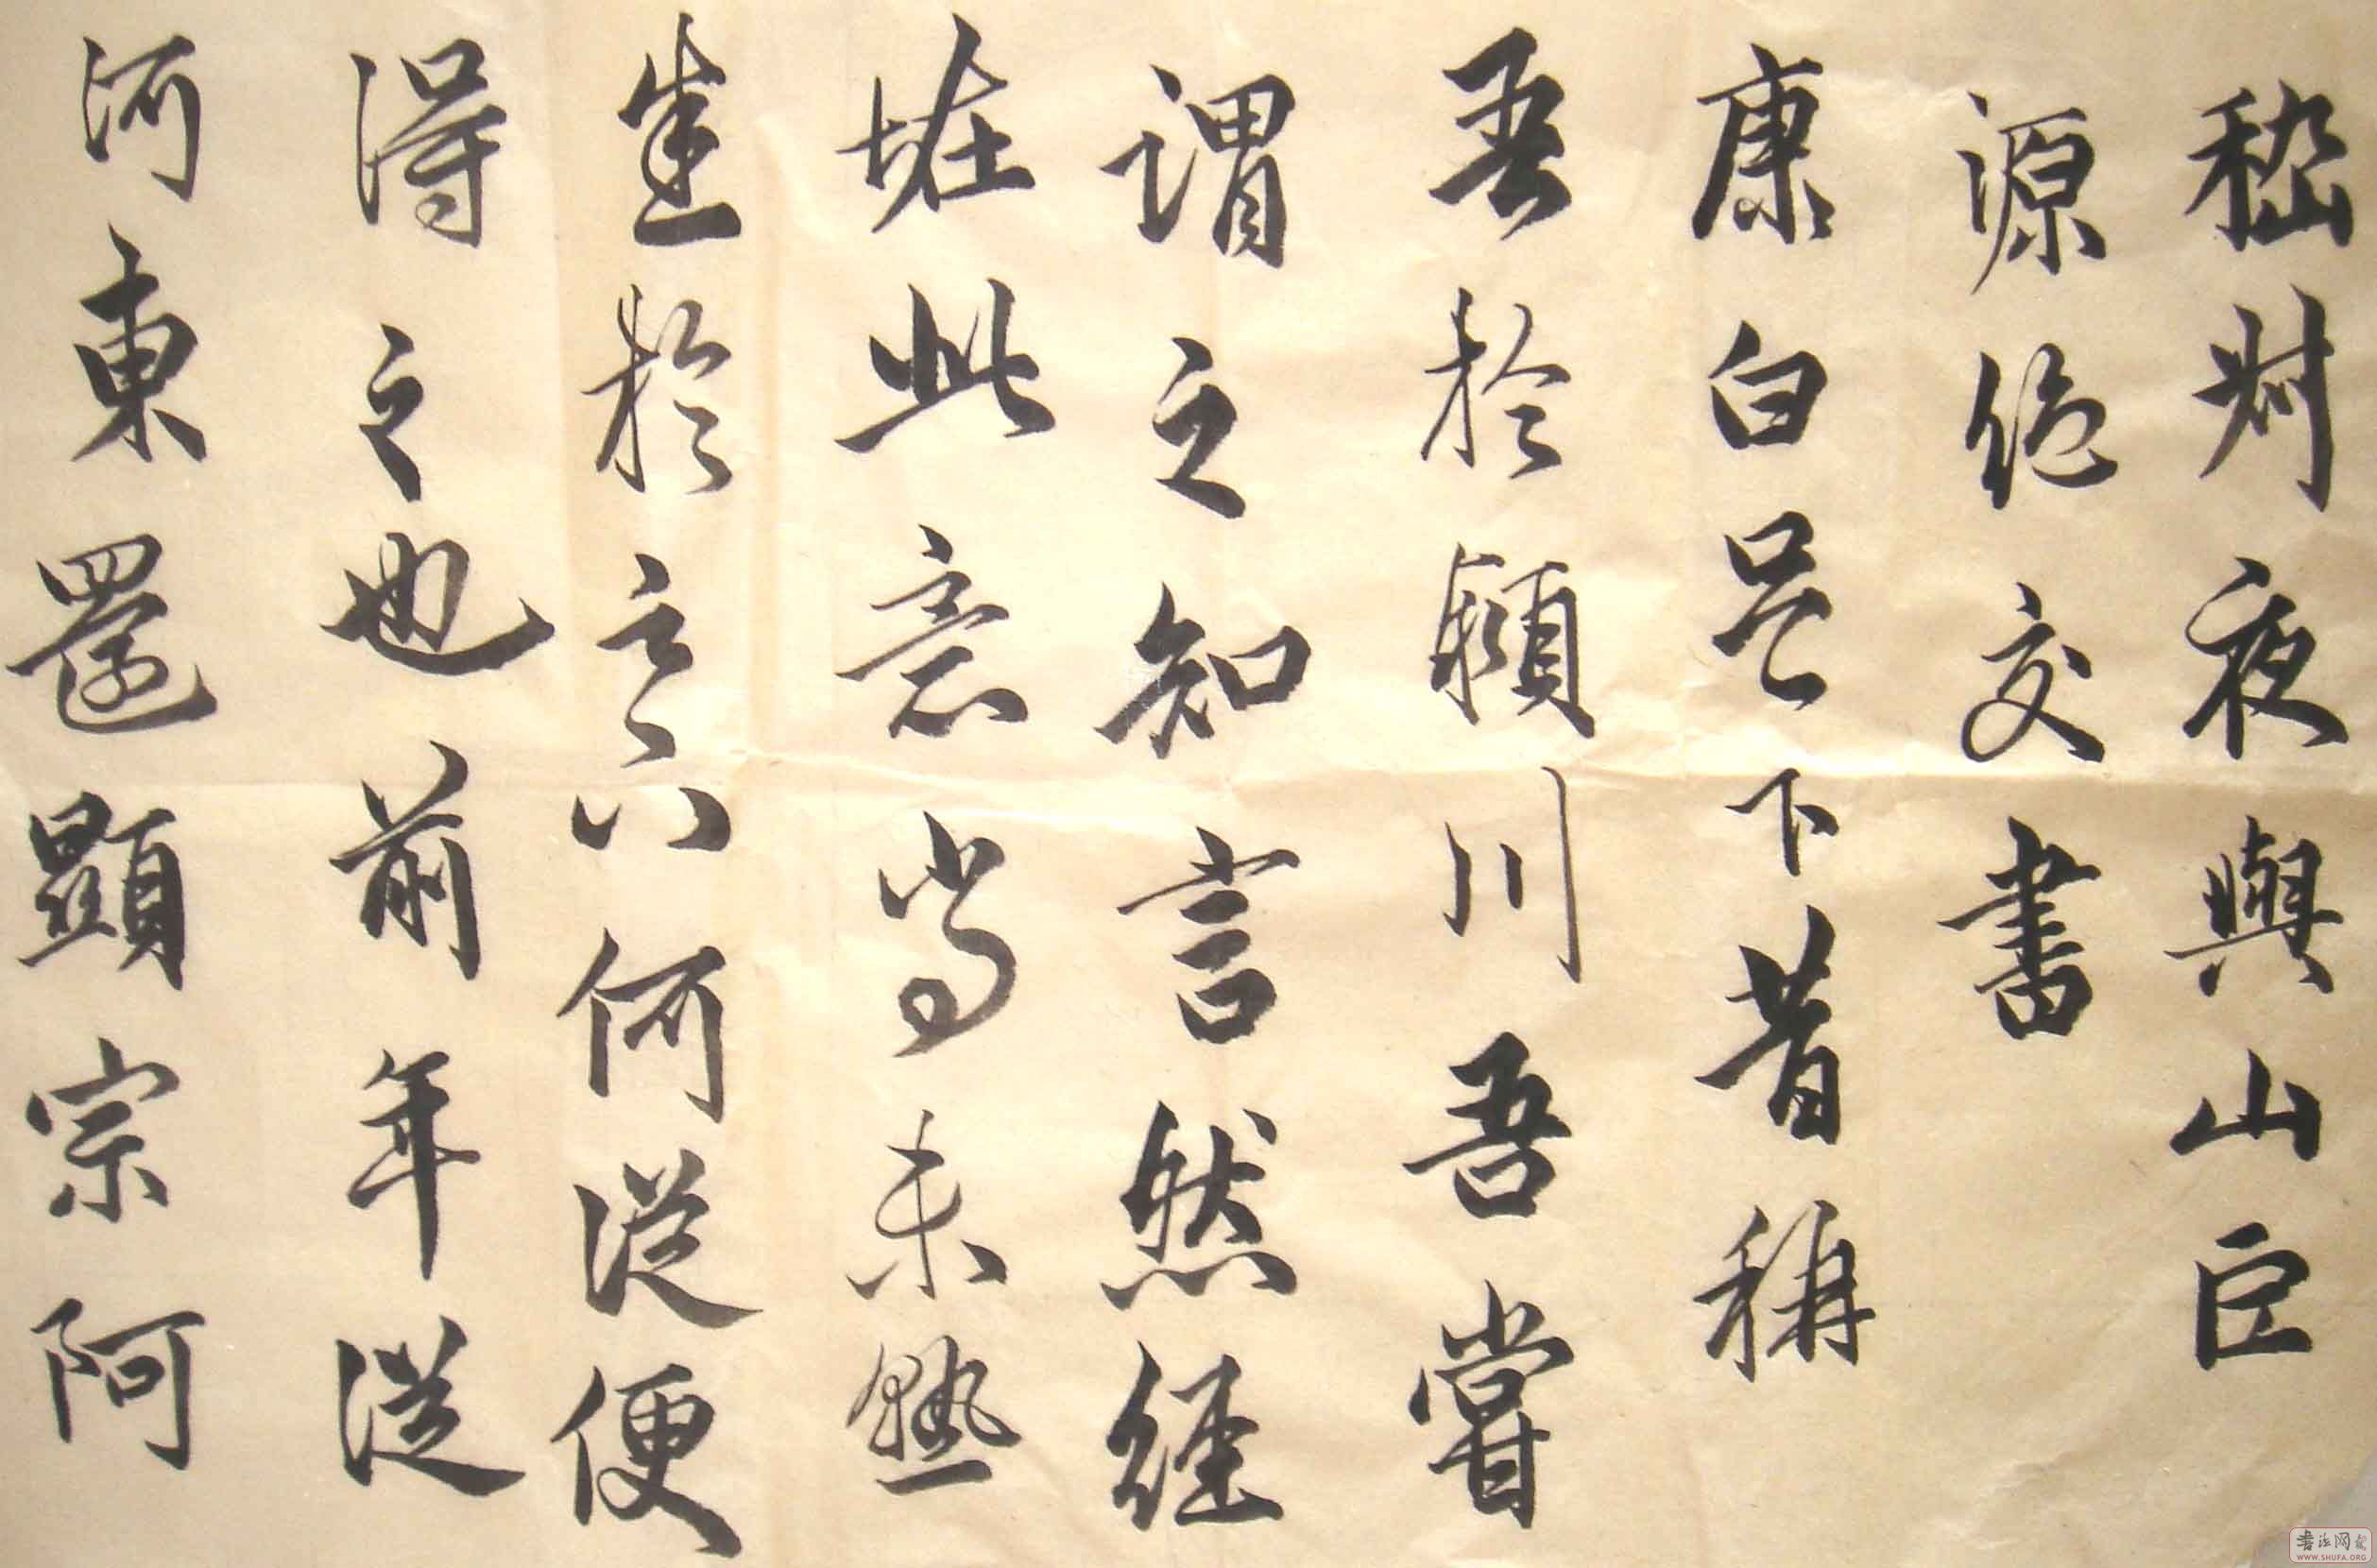 嵇叔夜與山巨
源絕交書
康白足下昔稱
吾於潁川吾嘗
謂之知言然經
恠此意尚未熟
悉於足下何從便
得之也前年從
河東還顯宗阿
WWW.SHUFA.ORG